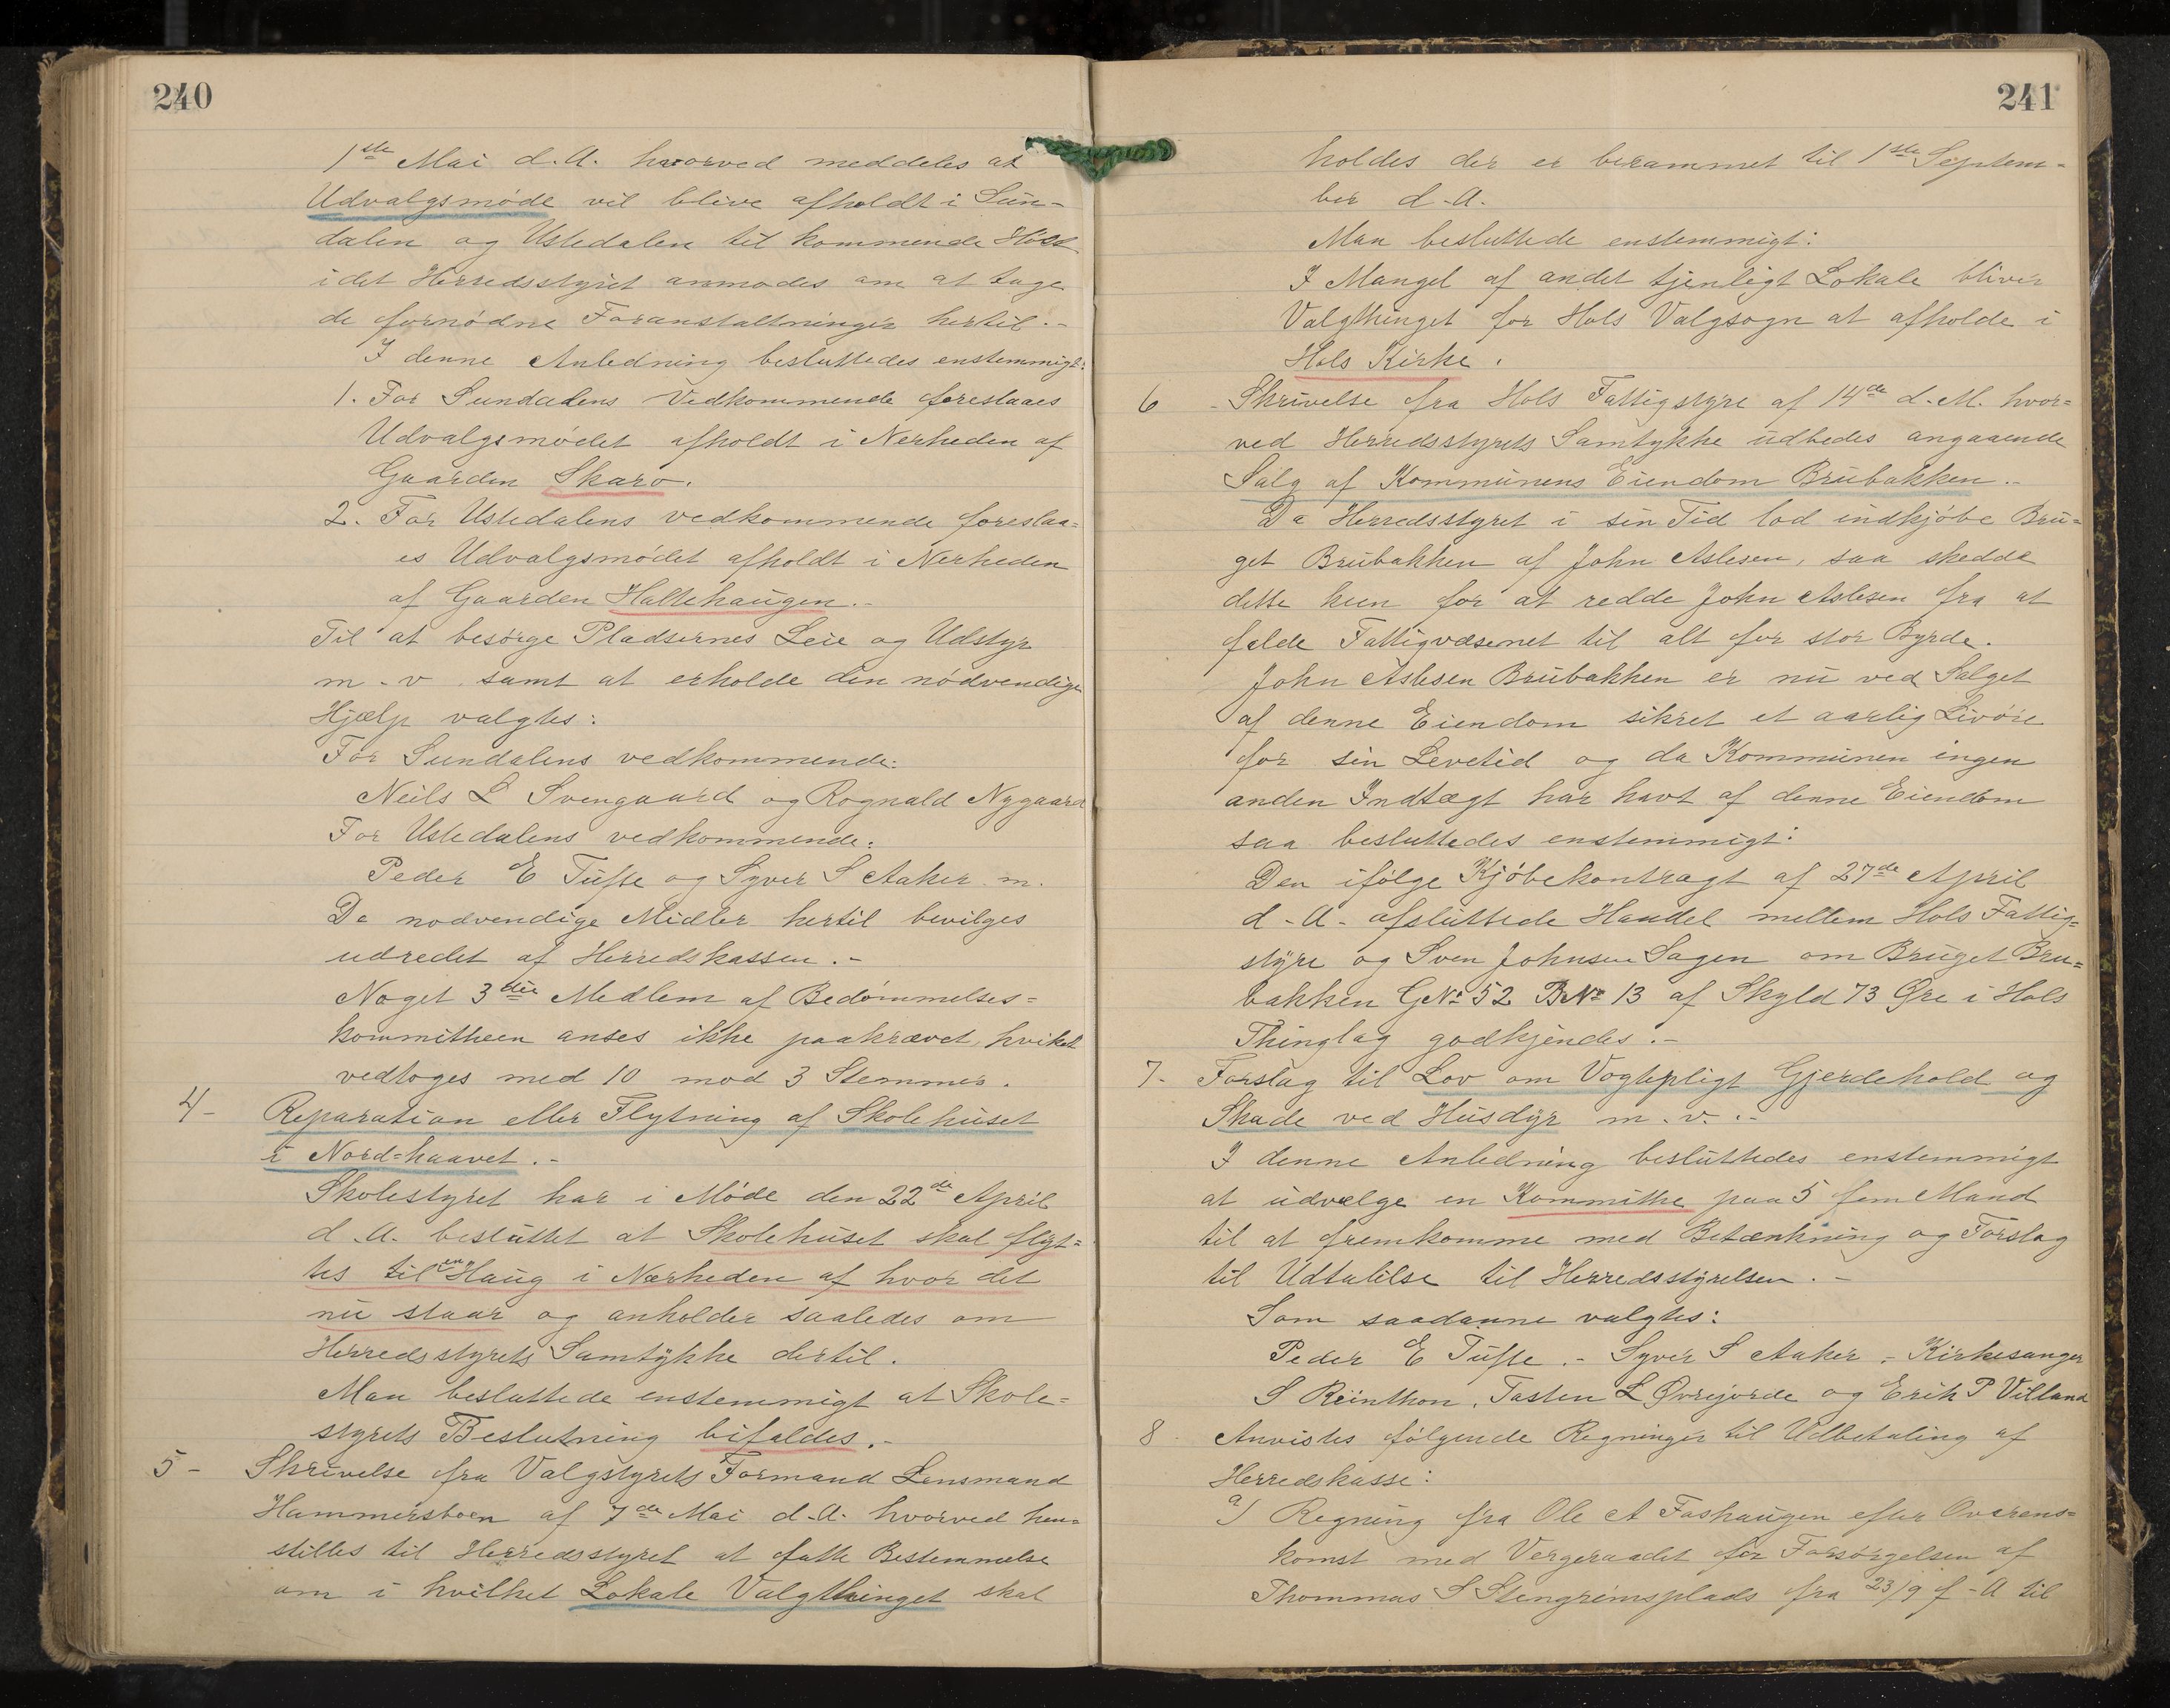 240
1ste Mai d.A. hvorved meddeles at
Udvalgsmøde vil blive afholdt i Sun-
dalen og Ustedalen til kommende Høst
idet Herredsstyret anmodes om at tage
de fornødne Foranstaltninger hertil.-
I denne Anledning besluttedes enstemmigt:
1. For Sundalens Vedkommende foreslaaes
Udvalgsmødet afholdt i Nerheden af
Gaarden Skaro.
2. For Ustedalens vedkommende foreslaa=
es Udvalgsmødet afholdt i Nerheden
af Gaarden Hallehaugen.-
Til at besørge Pladsernes Leie og Udstyr
m.v. samt at erholde den nødvendige
Hjælp valgtes:
For Sundalens vedkommende:
Neils L Svengaard og Rognald Nygaard
For Ustedalens vedkommende:
Peder E Tufte og Syver S Aaker m.
De nodvendige Midler hertil bevilges
udredet af Herredskassen.-
Noget 3die Medlem af Bedømmelses=
kommitheen anses ikke paakrævet, hvilket
vedtoges med 10 mod 3 Stemmer.
4- Reparation eller Flytning af Skolehuset
i Nord=haavet.-
Skolestyret har i Møde den 22de April
d.A. besluttet at Skolehuset skal flyt=
tes til en Haug i Nærheden af hvor det
nu staar og anholder saaledes om
Herredsstyrets Samtykke dertil.
Man besluttede enstemmigt at Skole=
styrets Beslutning bifaldes.-
5- Skrivelse fra Valgstyrets Formand Lensmand
Hammersboen af 7de Mai d.A. hvorved hen=
stilles til Herredsstyret at fatte Bestemmelse
om i hvilket Lokale Valgthinget skal
241
holdes der er berammet til 1ste Septem=
ber d.A.
Man besluttede enstemmigt:
I Mangel af andet tjenligt Lokale bliver
Valgthinget for Hols Valgsogn at afholde i
Hols Kirke.
6 - Skrivelse fra Hols Fattigstyre af 14de d.M. hvor=
ved Herredsstyrets Samtykke udbedes angaaende
Salg af Kommunens Eiendom Brubakken.-
Da Herredsstyret i sin Tid lod indkjøbe Bru=
get Brubakken af John Aslesen, saa skedde
dette kun for at redde John Aslesen fra at
falde Fattigvæsenet til alt for stor Byrde.
John Aslesen Brubakken er nu ved Salget
af denne Eiendom sikret et aarlig Livøre
for sin Levetid og da Kommunen ingen
anden Indtægt har havt af denne Eiendom
saa besluttedes enstemmigt:
Den ifølge Kjøbekontragt af 27de April
d.A. afsluttede Handel mellem Hols Fattig=
styre og Sven Johnsen Sagen om Bruget Bru=
bakken GNo 52 BNo 13 af Skyld 73 Øre i Hols
Thinglag godkjendes.-
7- Forslag til Lov om Vogtepligt Gjerdehold og
Skade ved Husdyr m.v.-
I denne Anledning besluttedes enstemmigt
at udvælge en Kommithe paa 5 fem Mand
til at fremkomme med Betænkning og Forslag
til Udtalelse til Herredsstyrelsen.-
Som saadanne valgtes:
Peder E Tufte.- Syver S Aaker.- Kirkesanger
S Reinthon, Tosten L Øvrejorde og Erik P Villand
8 - Anvistes følgende Regninger til Udbetaling af
Herredskasse:
a) Regning fra Ole A Foshaugen efter Overens=
komst med Vergeraadet for Forsørgelsen af
Thommas S Stengrimsplads fra 23/9 f-A til